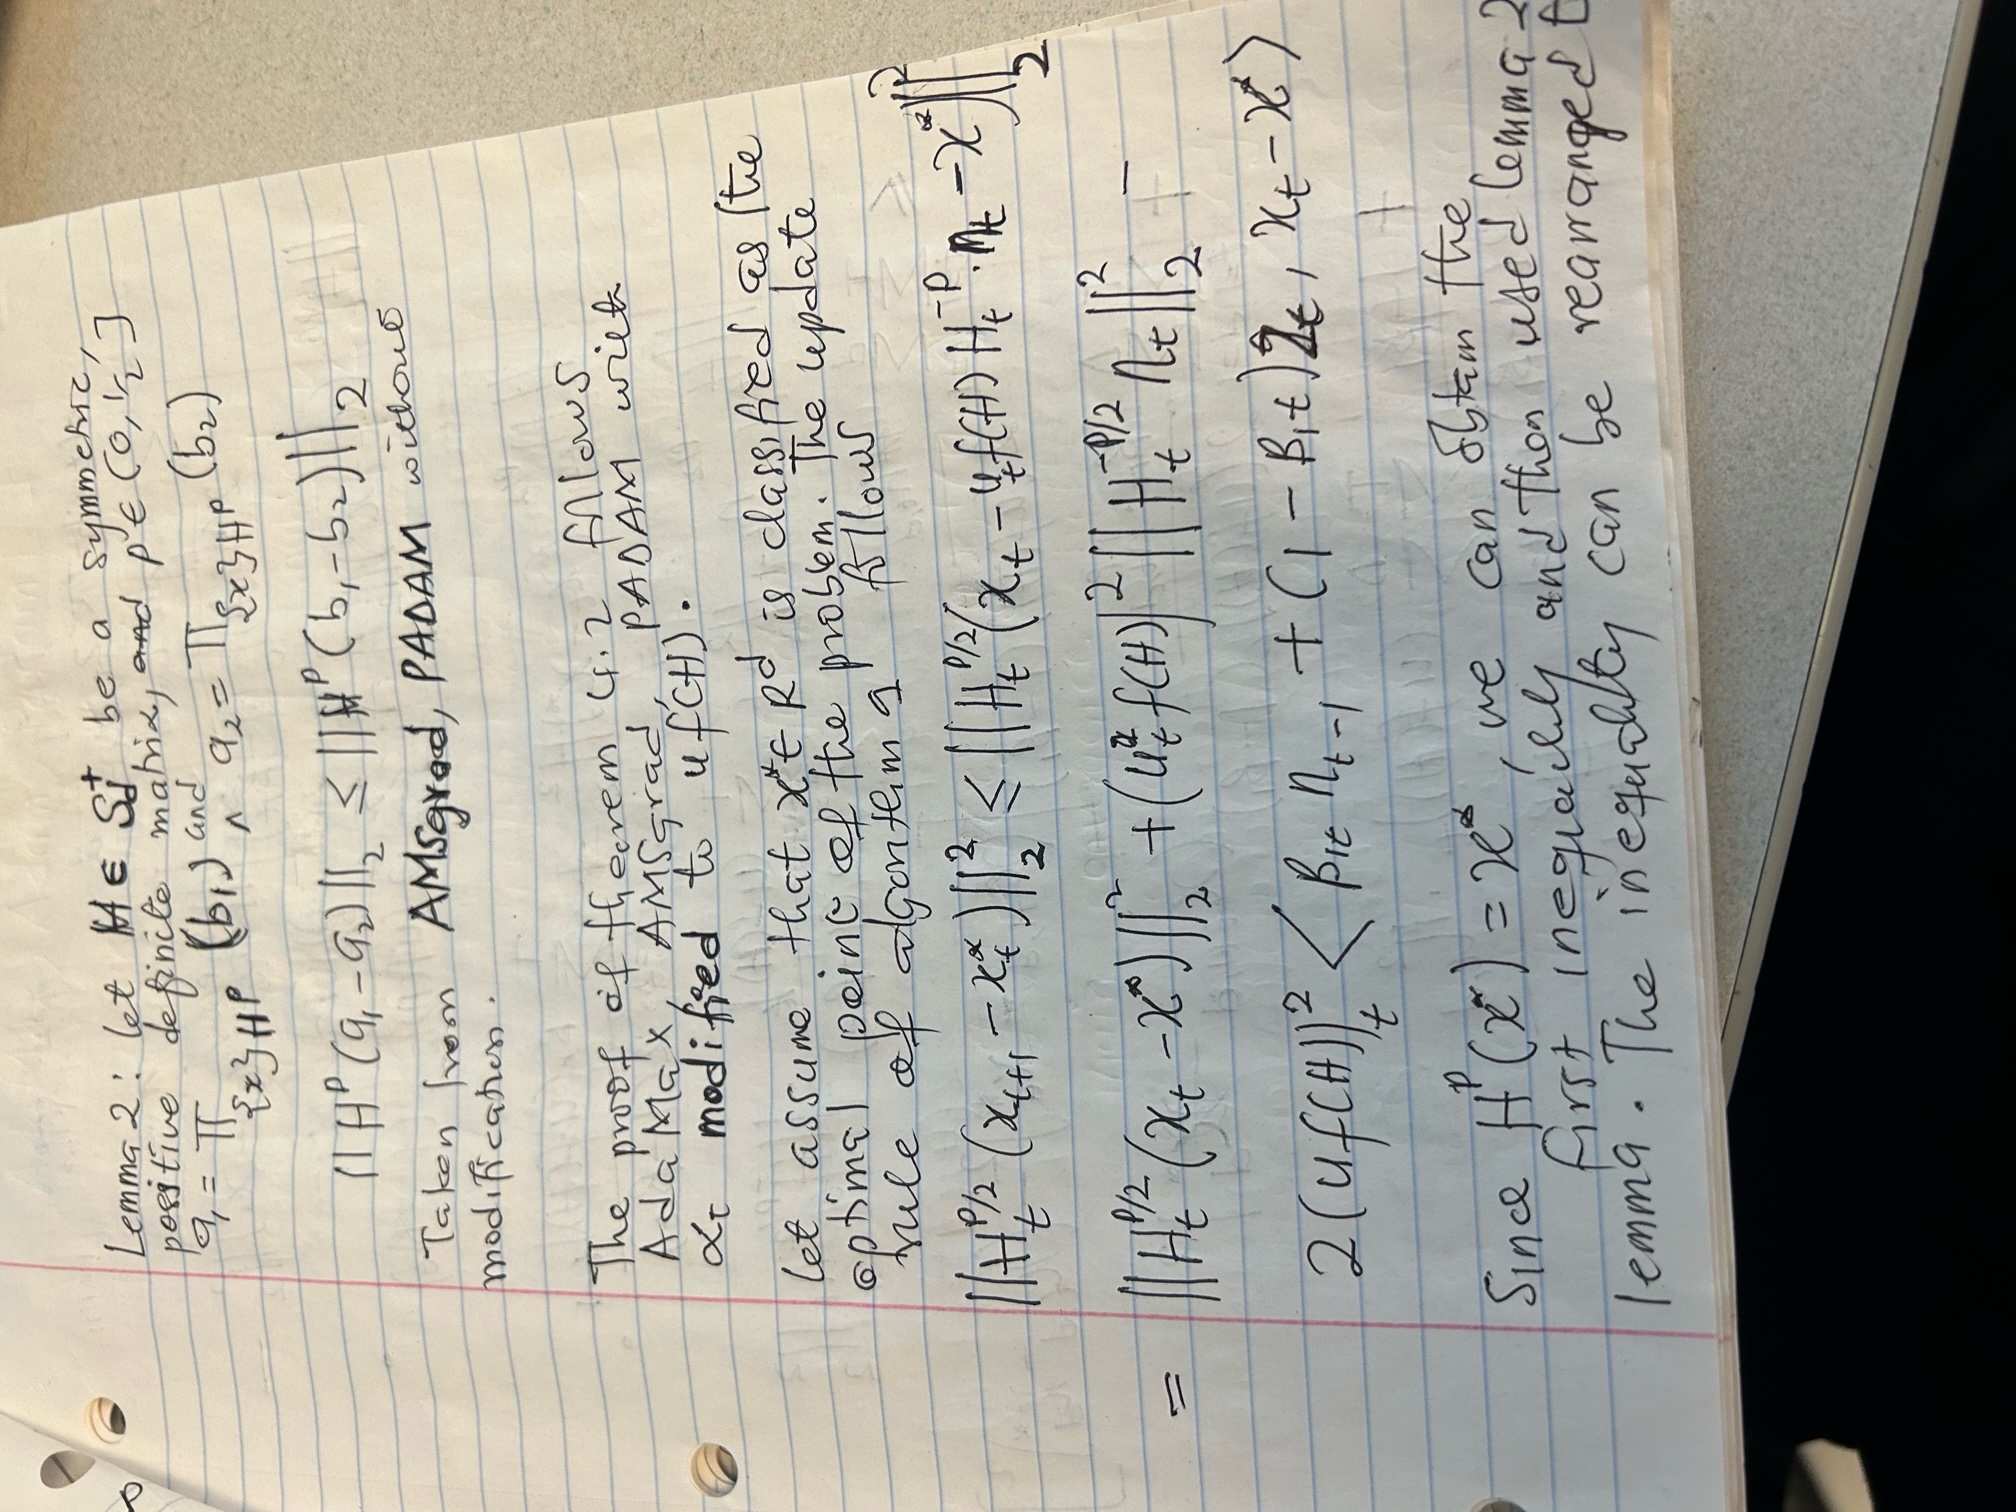 Lemma 2: let H ∈ S_d^+ be a symmetric,
positive definite matrix, and p ∈ (0, 1/2]
a_1 = Π_{{x}H^p} (b_1) and ∧ a_2 = Π_{{x}H^p} (b_2)
||H^p (a_1 - a_2)||_2 ≤ ||H^p (b_1 - b_2)||_2
Taken from AMSgrad, PADAM without
modification.
The proof of theorem 4.2 follows
AdaMax, AMSgrad, PADAM with
α_t modified to u f(H).
let assume that x* ∈ R^d is classified as the
optimal point of the problem. The update
rule of algorithm 1 follows
||H_t^{p/2} (x_{t+1} - x_t^*)||_2^2 ≤ ||H_t^{p/2} (x_t - u_t f(H) H_t^{-p} · n_t - x*)||_2^2
= ||H_t^{p/2} (x_t - x*)||_2^2 + (u_t^* f(H))^2 ||H_t^{-p/2} n_t||_2^2 -
2 (u f(H))_t^2 < β_{1t} n_{t-1} + (1 - β_{1t}) 2_t, x_t - x* >
Since H^p (x*) = x*, we can obtain the
first inequality and then used lemma 2
lemma. The inequality can be rearranged t